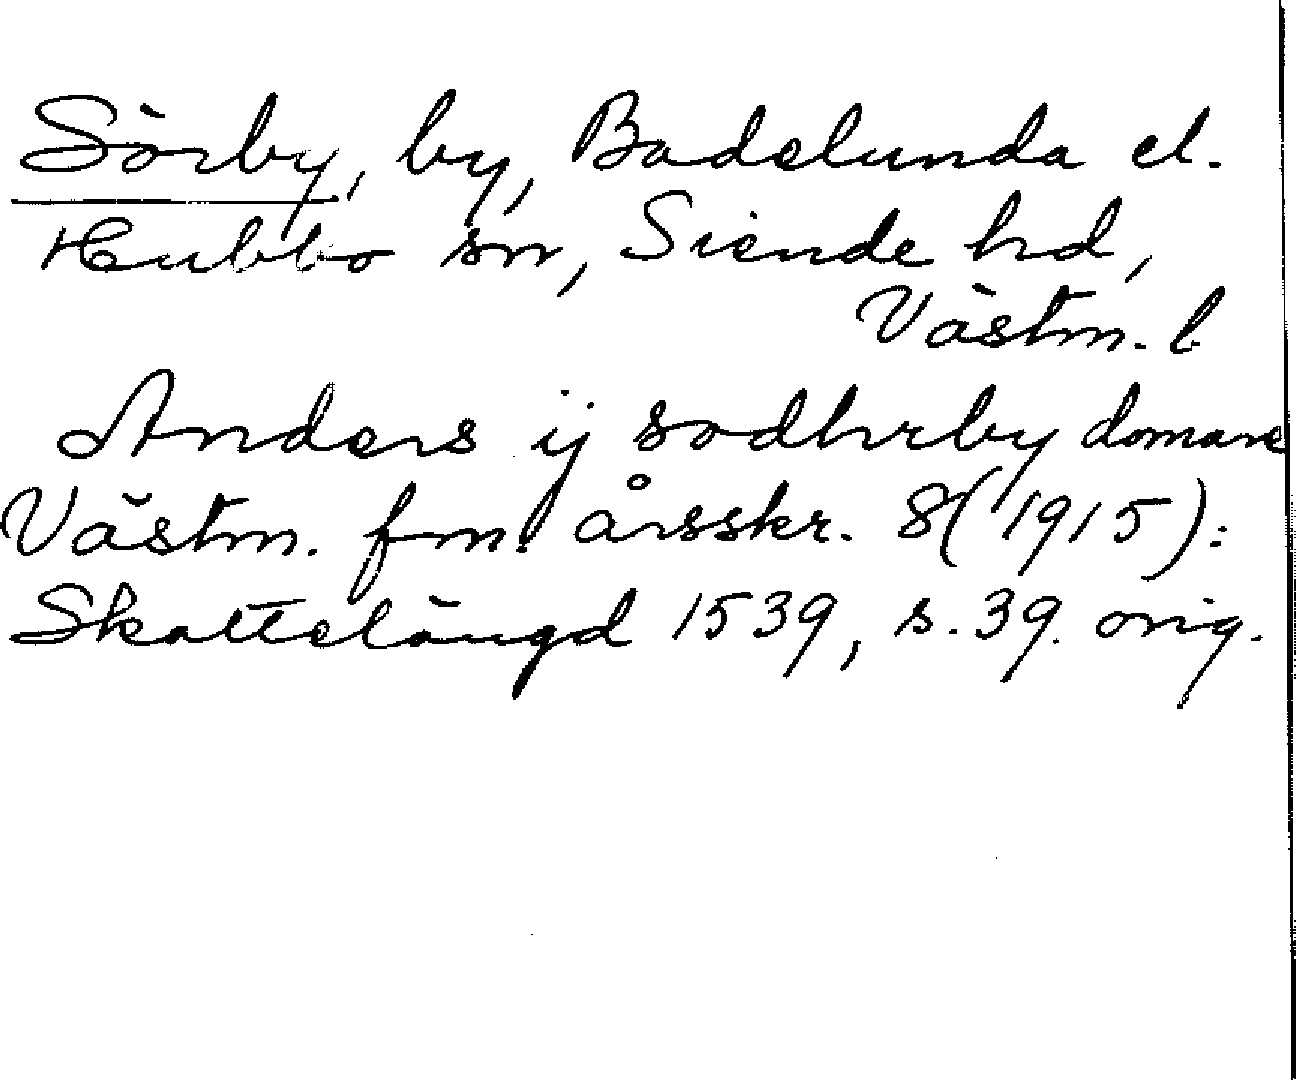 Sörby, by, Badelunda el.
Hubbo sn, Siende hd,
Västm. l
Anders ij sodhrby domare
Västm. fm. årsskr. 8(1915):
Skattelängd 1539, s. 39. orig.